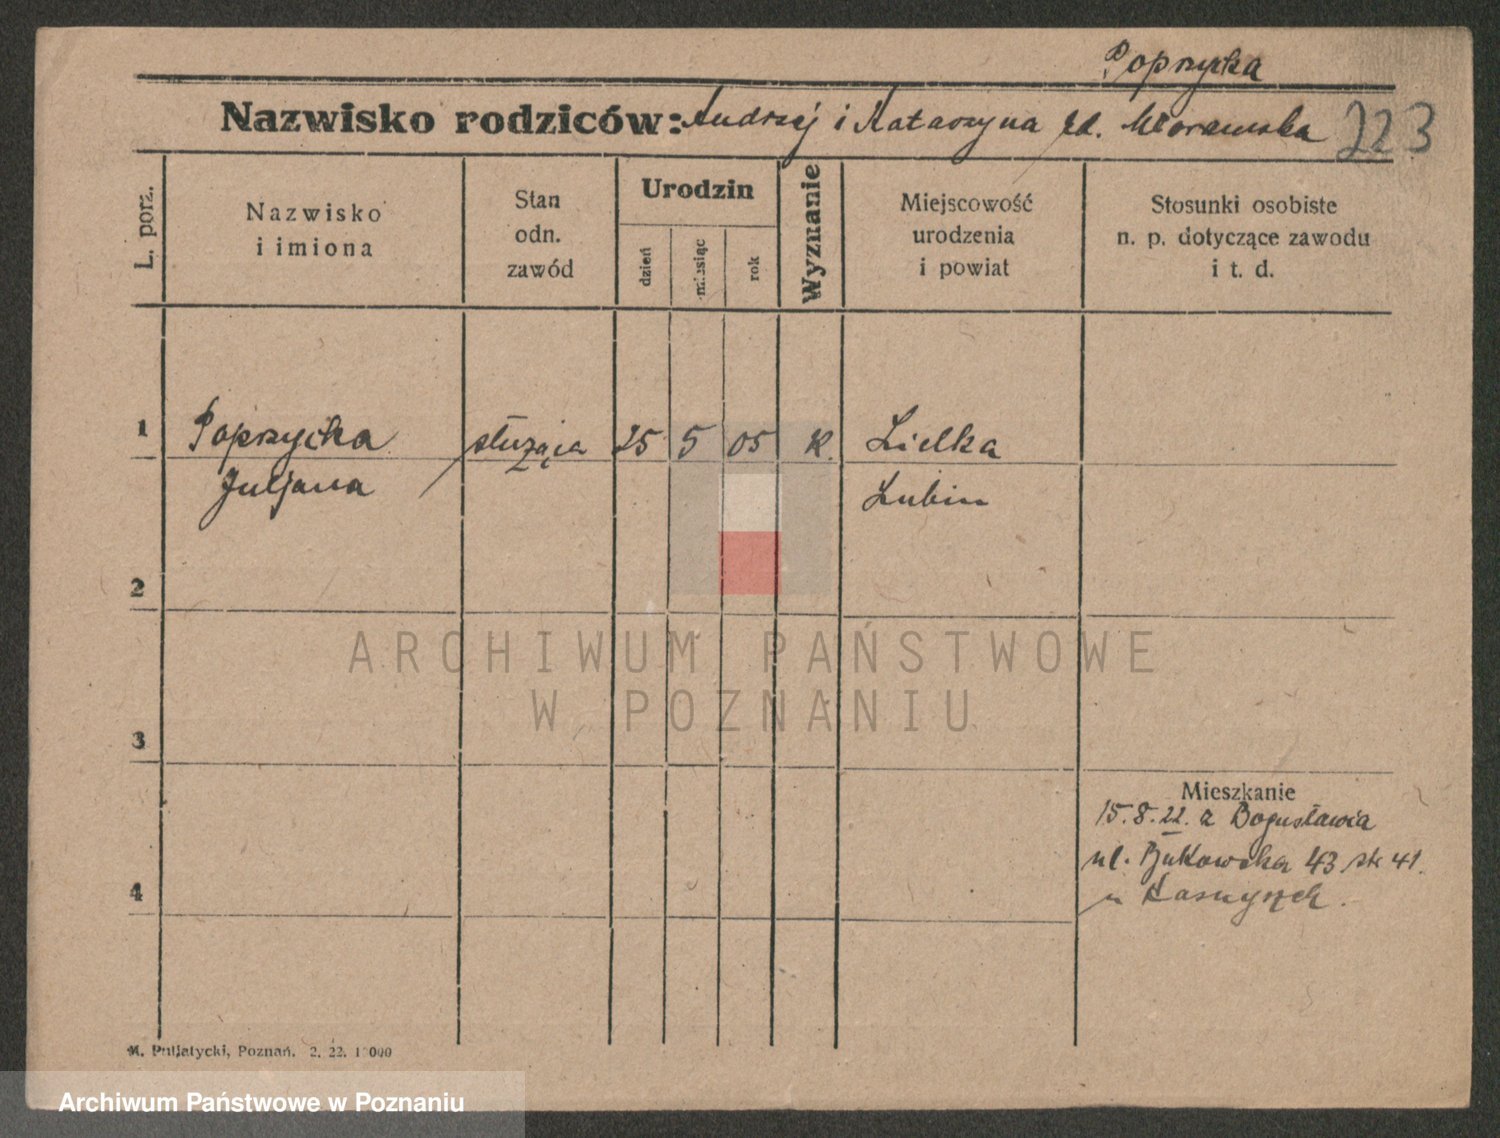 Poprzycka
Nazwisko rodziców: Andrzej i Katarzyna zd. Morawska 223
L. porz.
Nazwisko
i imiona
Stan
odn.
zawód
Urodzin
dzień
miesiąc
rok
Wyznanie
Miejscowość
urodzenia
i powiat
Stosunki osobiste
n. p. dotyczące zawodu
i t. d.
1 Poprzycka służąca 25 5 05 K.
Juljana Lubin
2
ARCHIWUM PAŃSTWOWE
W POZNANIU
3
Mieszkanie
15.8.22. z Bogusławia
ul. Bukowska 43 41.
4 u
M. Putiatycki, Poznań. 2. 22. 1 000
Archiwum Państwowe w Poznaniu